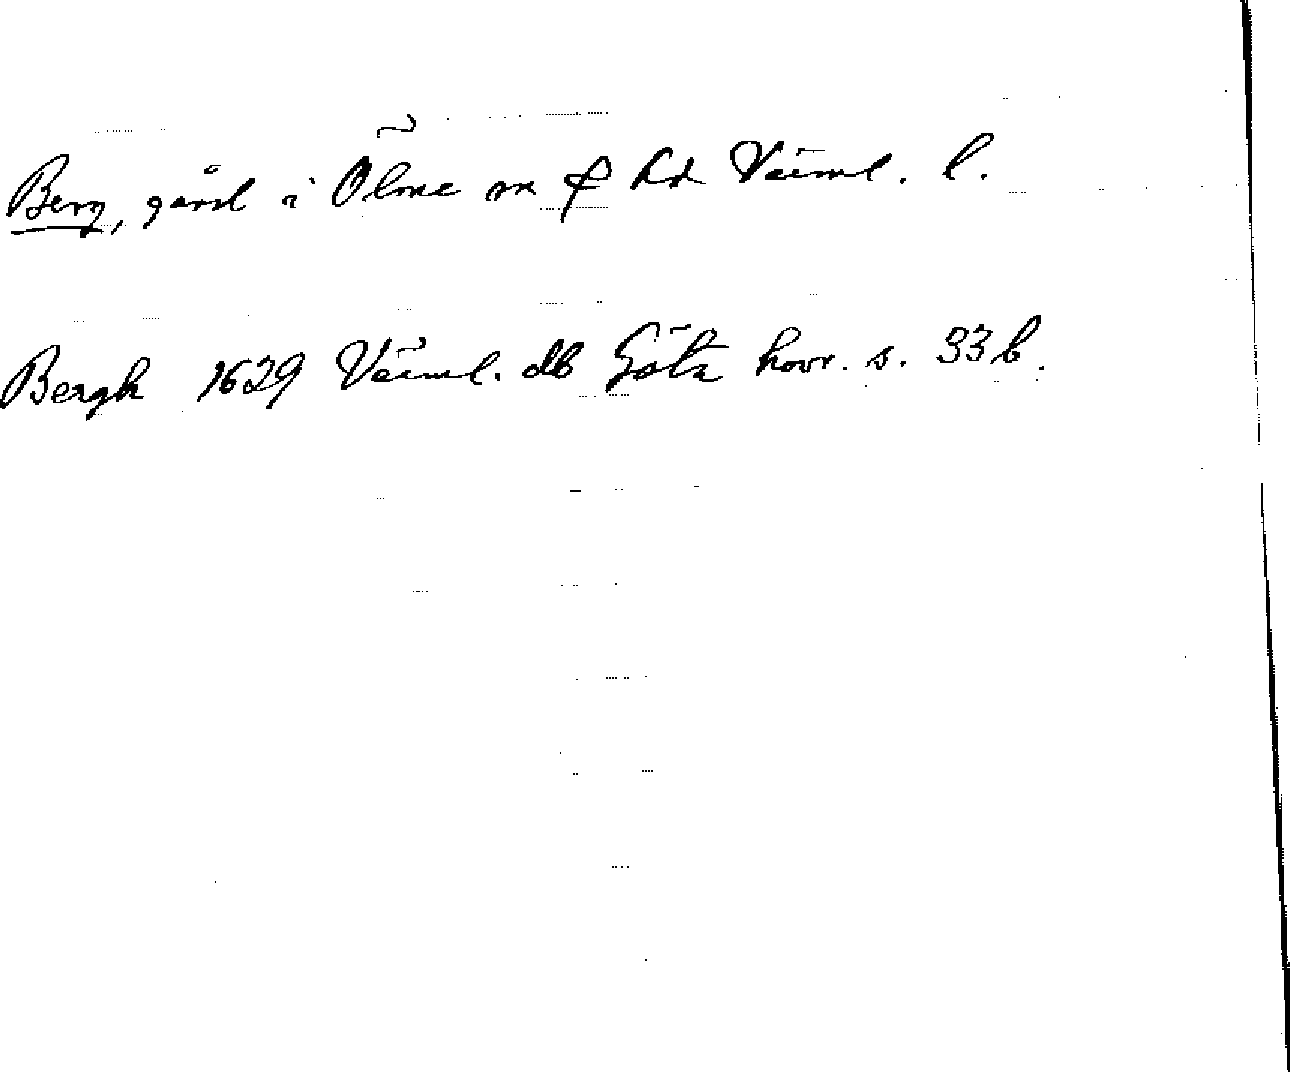 Berg, gård i Ölme sn o hd Värml. l.
Bergh 1629 Värml. db Göta hovr. s. 33 b.